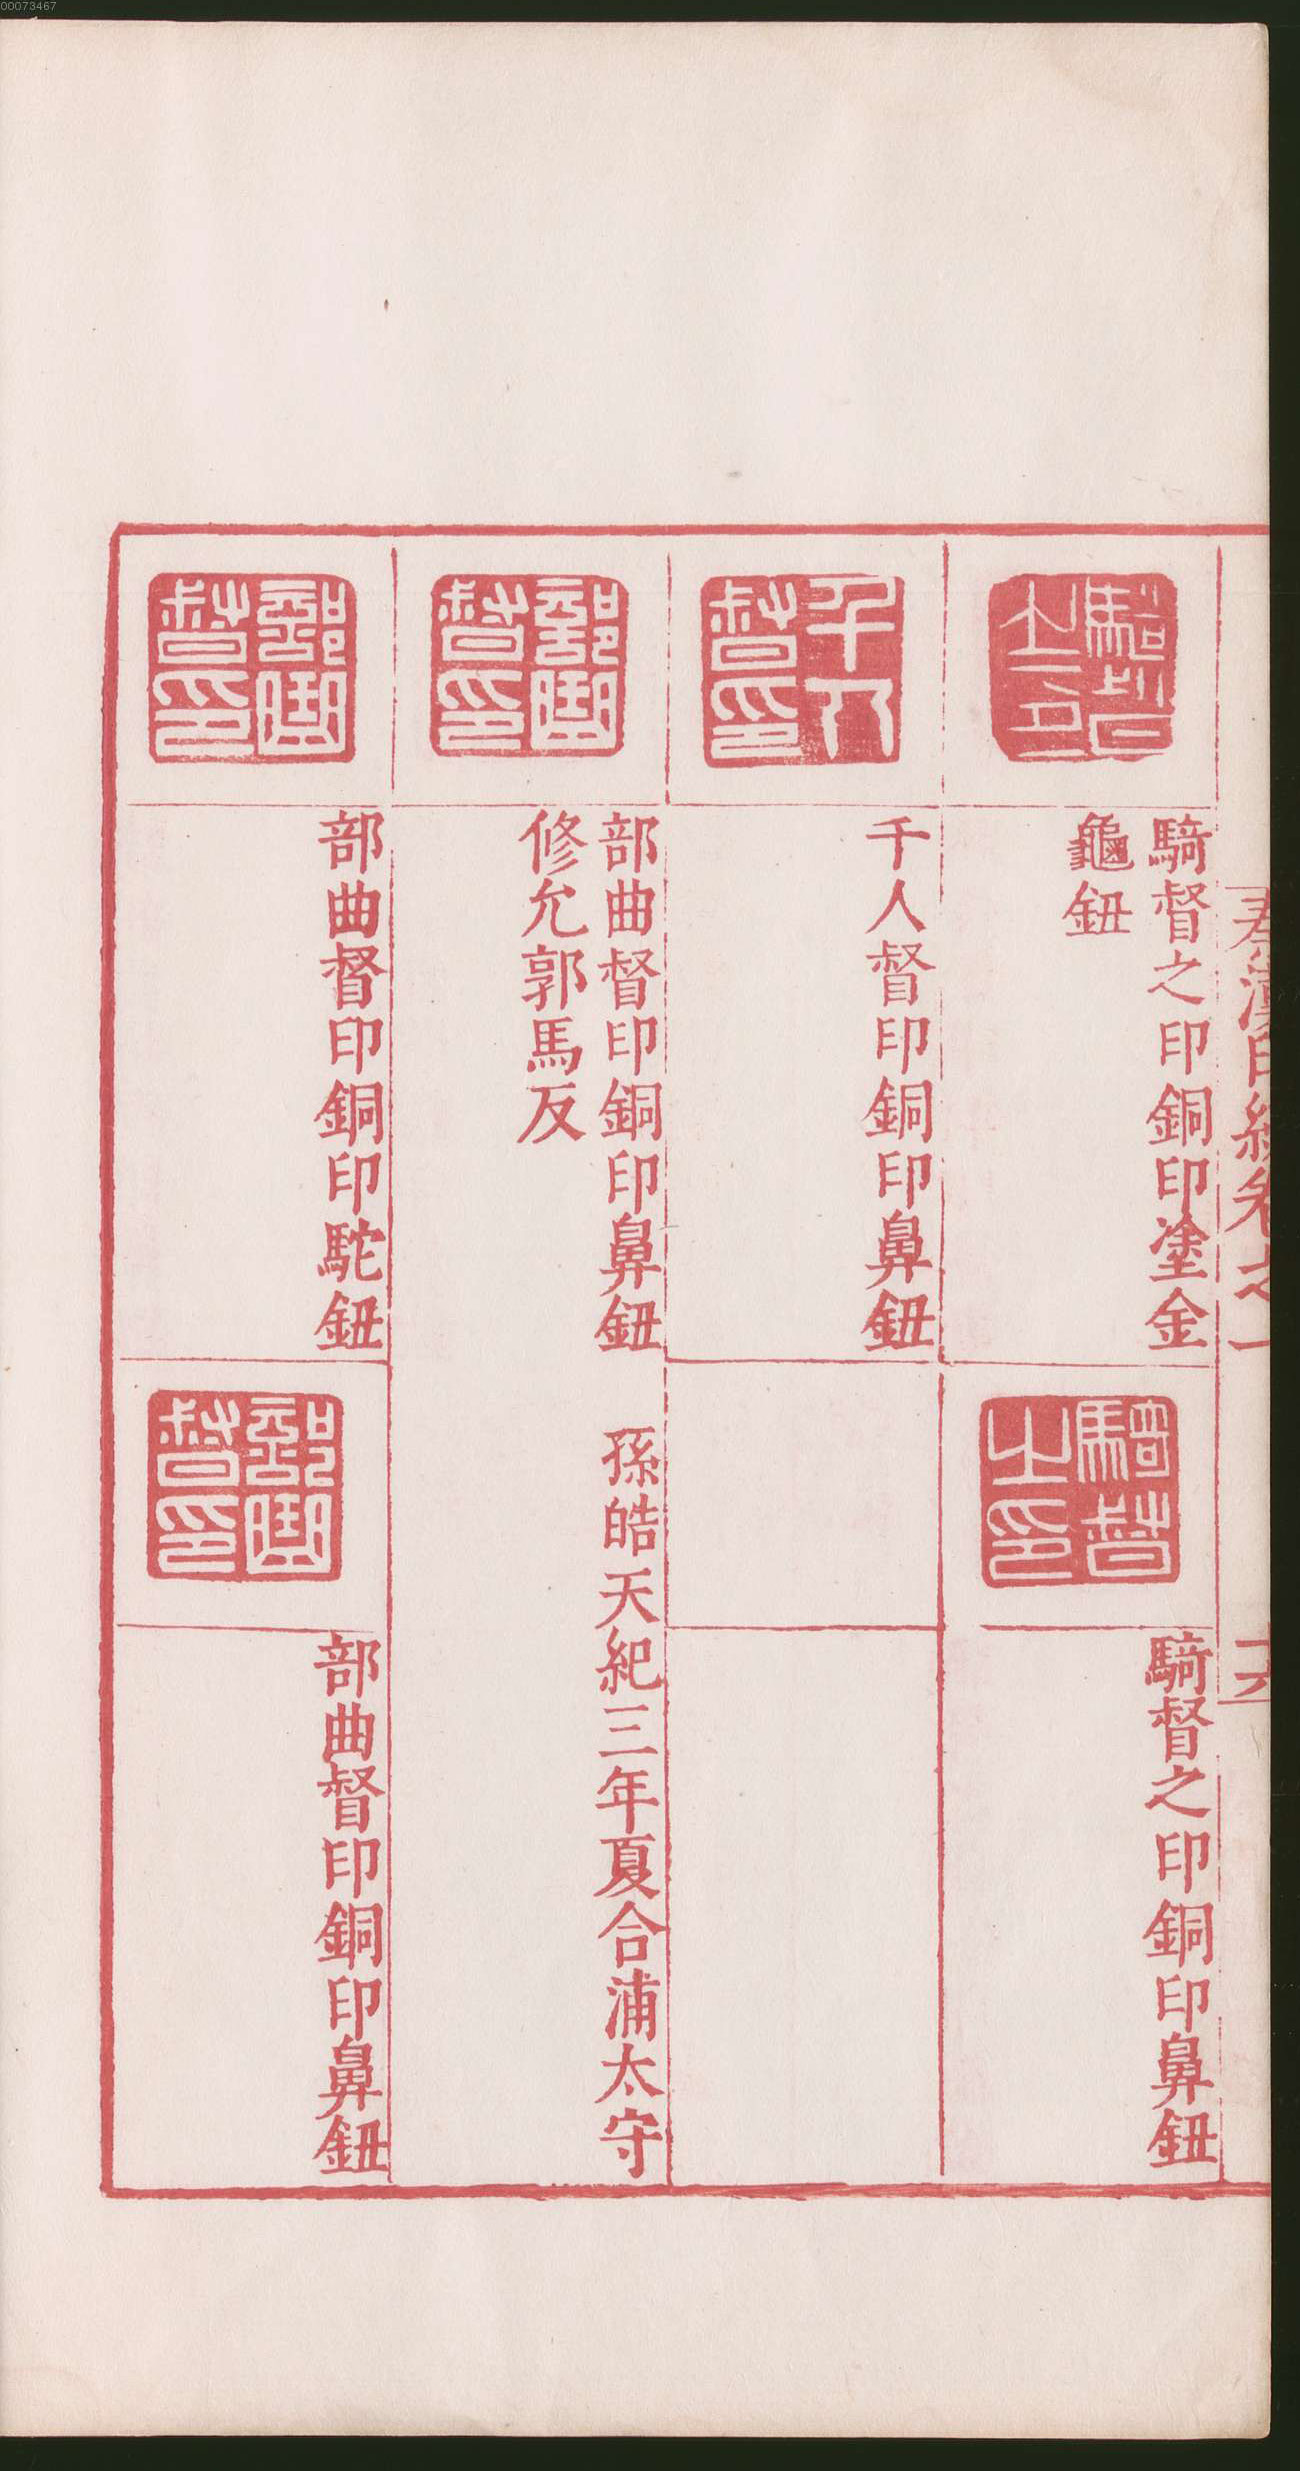 00073467
秦漢印統卷之一
十六
騎督之印
騎督之印銅印塗金
龜鈕
騎督之印
騎督之印銅印鼻鈕
千人督印
千人督印銅印鼻鈕
部曲督印
部曲督印銅印鼻鈕　孫皓天紀三年夏合浦太守
修允郭馬反
部曲督印
部曲督印銅印駝鈕
部曲督印
部曲督印銅印鼻鈕